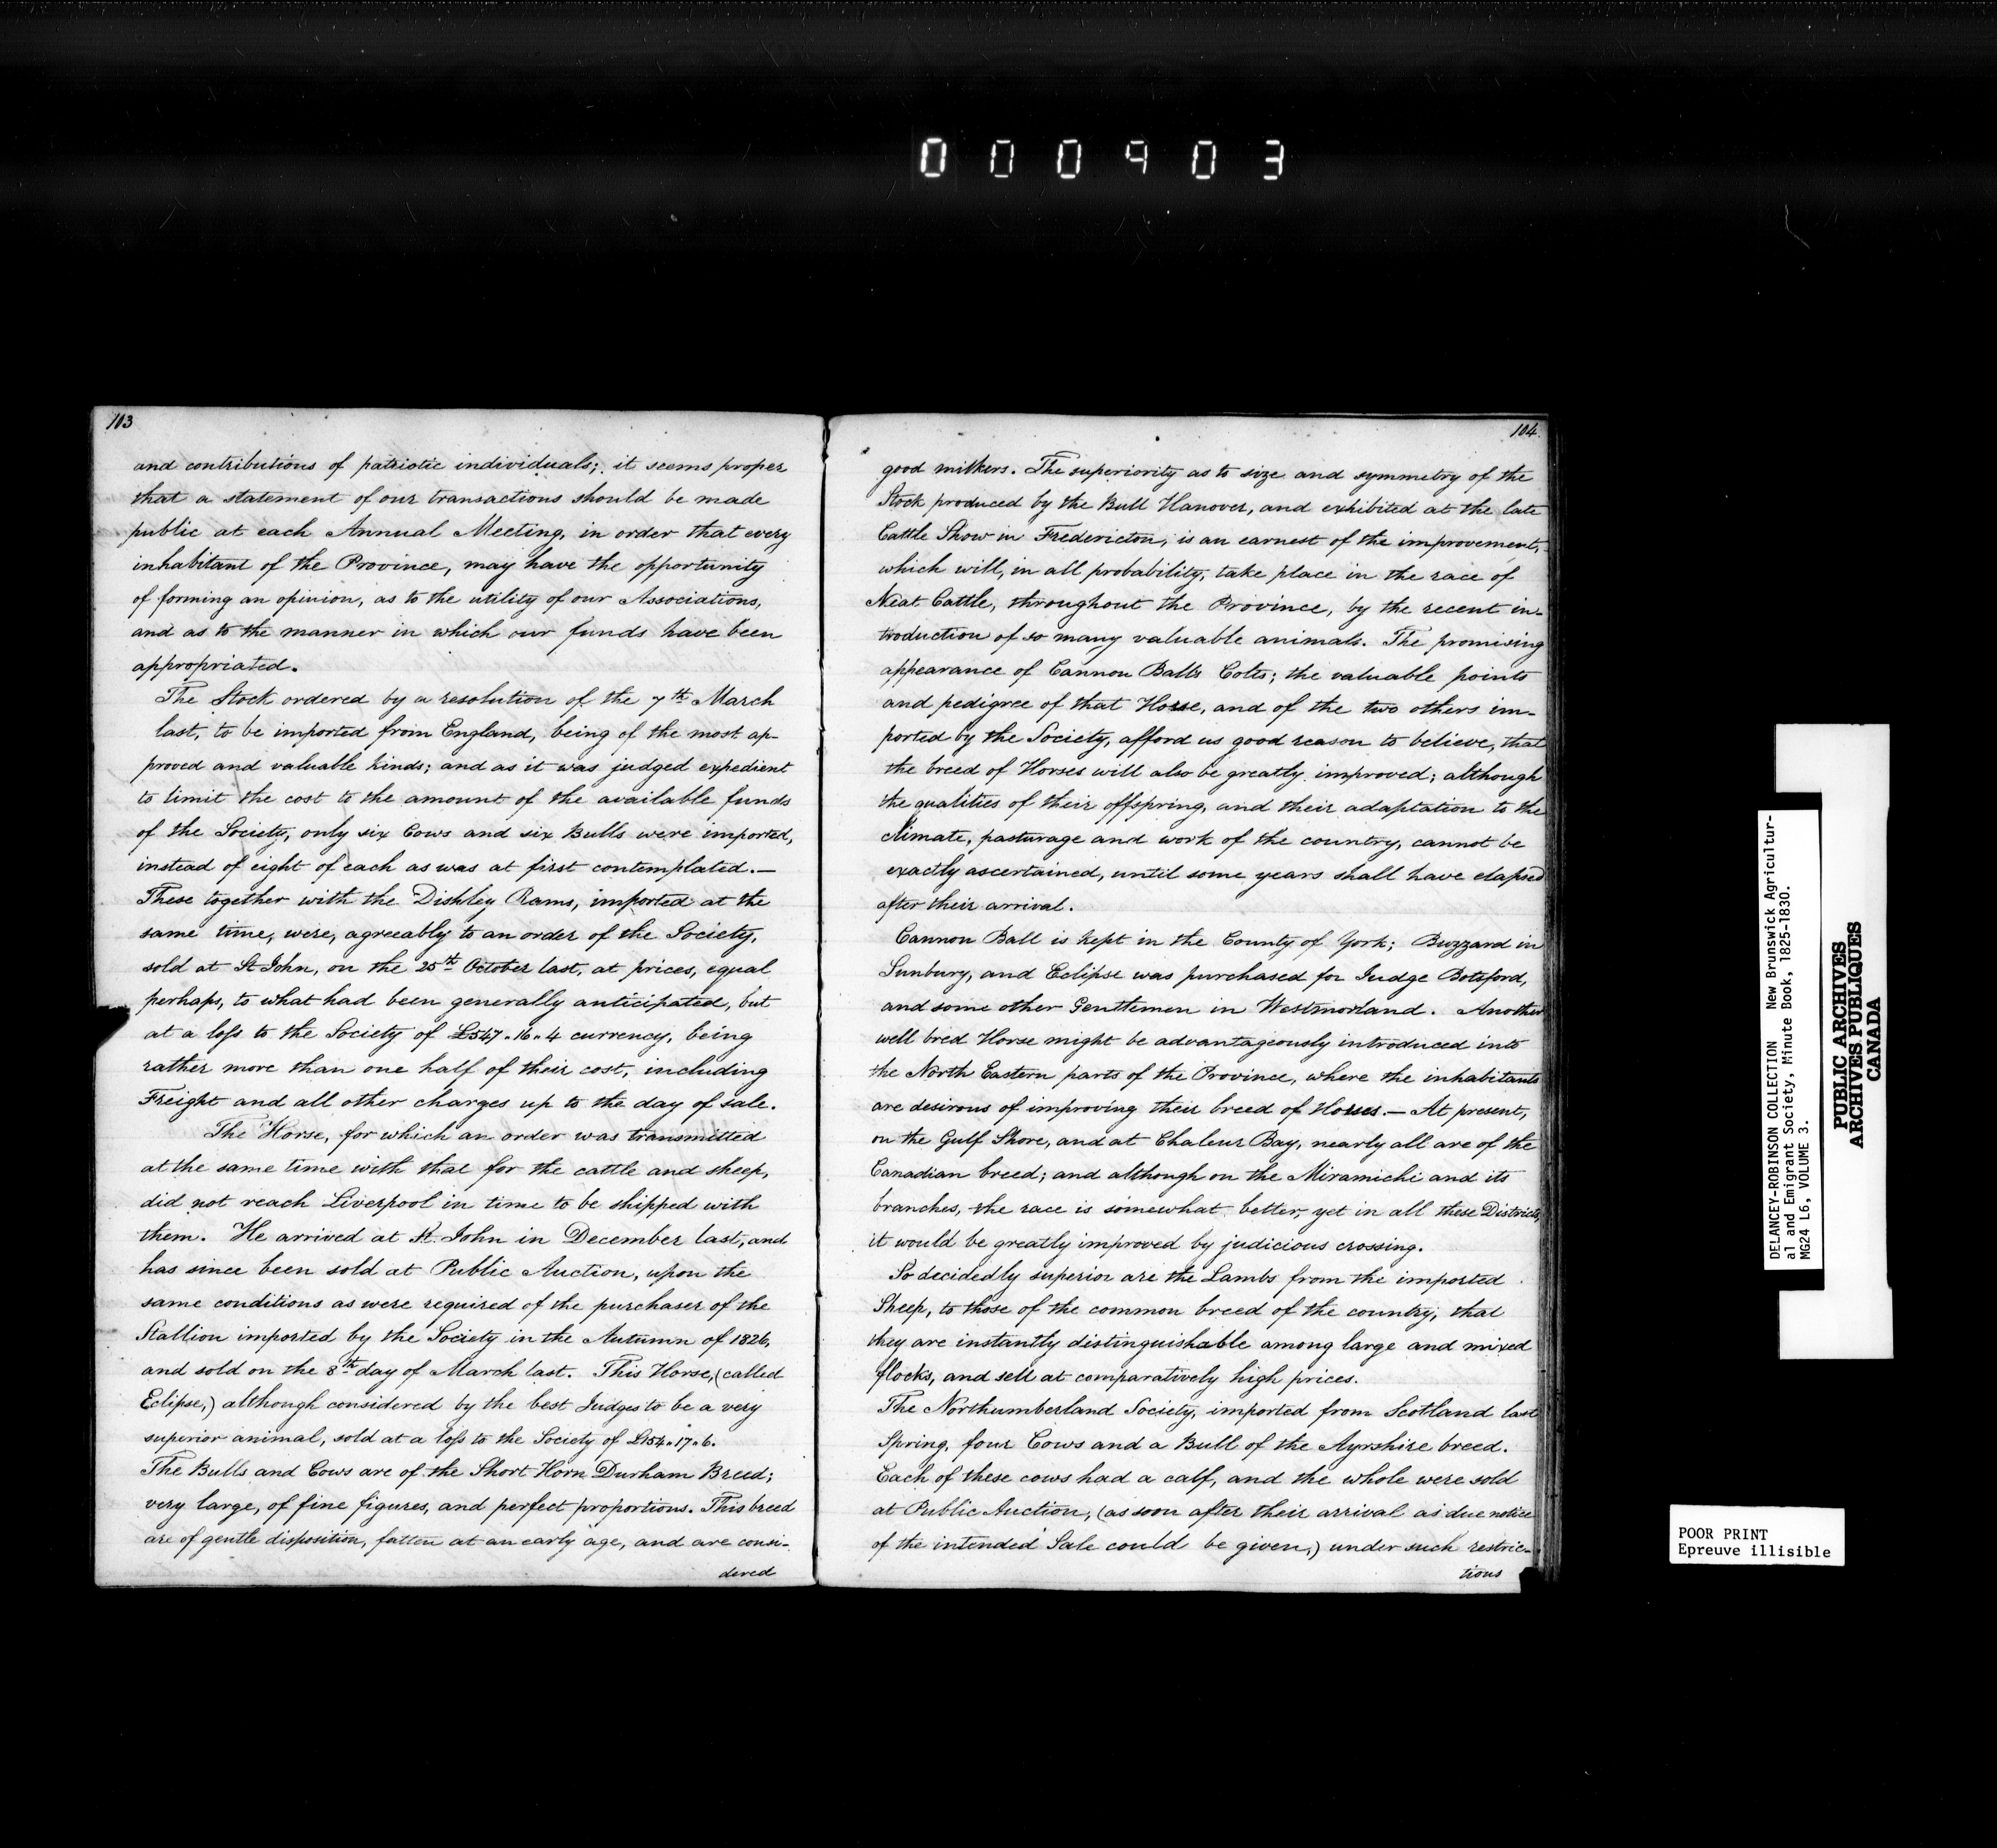 000903
103
and contributions of patriotic individuals; it seems proper
that a statement of our transactions should be made
public at each Annual Meeting, in order that every
inhabitant of the Province, may have the opportunity
of forming an opinion, as to the utility of our Associations,
and as to the manner in which our funds have been
appropriated.
The Stock ordered by a resolution of the 7th March
last, to be imported from England, being of the most ap-
proved and valuable kinds; and as it was judged expedient
to limit the cost to the amount of the available funds
of the Society, only six Cows and six Bulls were imported,
instead of eight of each as was at first contemplated.—
These together with the Dishley Rams, imported at the
same time, were, agreeably to an order of the Society,
sold at St John, on the 25th October last, at prices, equal
perhaps, to what had been generally anticipated, but
at a loss to the Society of £547.16.4 currency, being
rather more than one half of their cost, including
Freight and all other charges up to the day of sale.
The Horse, for which an order was transmitted
at the same time with that for the cattle and sheep,
did not reach Liverpool in time to be shipped with
them. He arrived at St. John in December last, and
has since been sold at Public Auction, upon the
same conditions as were required of the purchaser of the
Stallion imported by the Society in the Autumn of 1826,
and sold on the 8th day of March last. This Horse, (called
Eclipse,) although considered by the best Judges to be a very
superior animal, sold at a loss to the Society of £154.17.6.
The Bulls and Cows are of the Short Horn Durham Breed;
very large, of fine figures, and perfect proportions. This breed
are of gentle disposition, fatten at an early age, and are consi-
dered
104.
good milkers. The superiority as to size and symmetry of the
Stock produced by the Bull Hanover, and exhibited at the late
Cattle Show in Fredericton, is an earnest of the improvement,
which will, in all probability, take place in the race of
Neat Cattle, throughout the Province, by the recent in-
troduction of so many valuable animals. The promising
appearance of Cannon Balls Colts; the valuable points
and pedigree of that Horse, and of the two others im-
ported by the Society, afford us good reason to believe, that
the breed of Horses will also be greatly improved; although
the qualities of their offspring, and their adaptation to the
climate, pasturage and work of the country, cannot be
exactly ascertained, until some years shall have elapsed
after their arrival.
Cannon Ball is kept in the County of York; Buzzard in
Sunbury, and Eclipse was purchased for Judge Botsford,
and some other Gentlemen in Westmorland. Another
well bred Horse might be advantageously introduced into
the North Eastern parts of the Province, where the inhabitants
are desirous of improving their breed of Horses.— At present,
on the Gulf Shore, and at Chaleur Bay, nearly all are of the
Canadian breed; and although on the Miramichi and its
branches, the race is somewhat better, yet in all these Districts,
it would be greatly improved by judicious crossing.
So decidedly superior are the Lambs from the imported
Sheep, to those of the common breed of the country, that
they are instantly distinguishable among large and mixed
flocks, and sell at comparatively high prices.
The Northumberland Society, imported from Scotland last
Spring, four Cows and a Bull of the Ayrshire breed.
Each of these cows had a calf, and the whole were sold
at Public Auction, (as soon after their arrival as due notice
of the intended Sale could be given,) under such restric-
tions
DELANCEY-ROBINSON COLLECTION New Brunswick Agricultur-
al and Emigrant Society, Minute Book, 1825-1830.
MG24 L6, VOLUME 3.
PUBLIC ARCHIVES
ARCHIVES PUBLIQUES
CANADA
POOR PRINT
Epreuve illisible